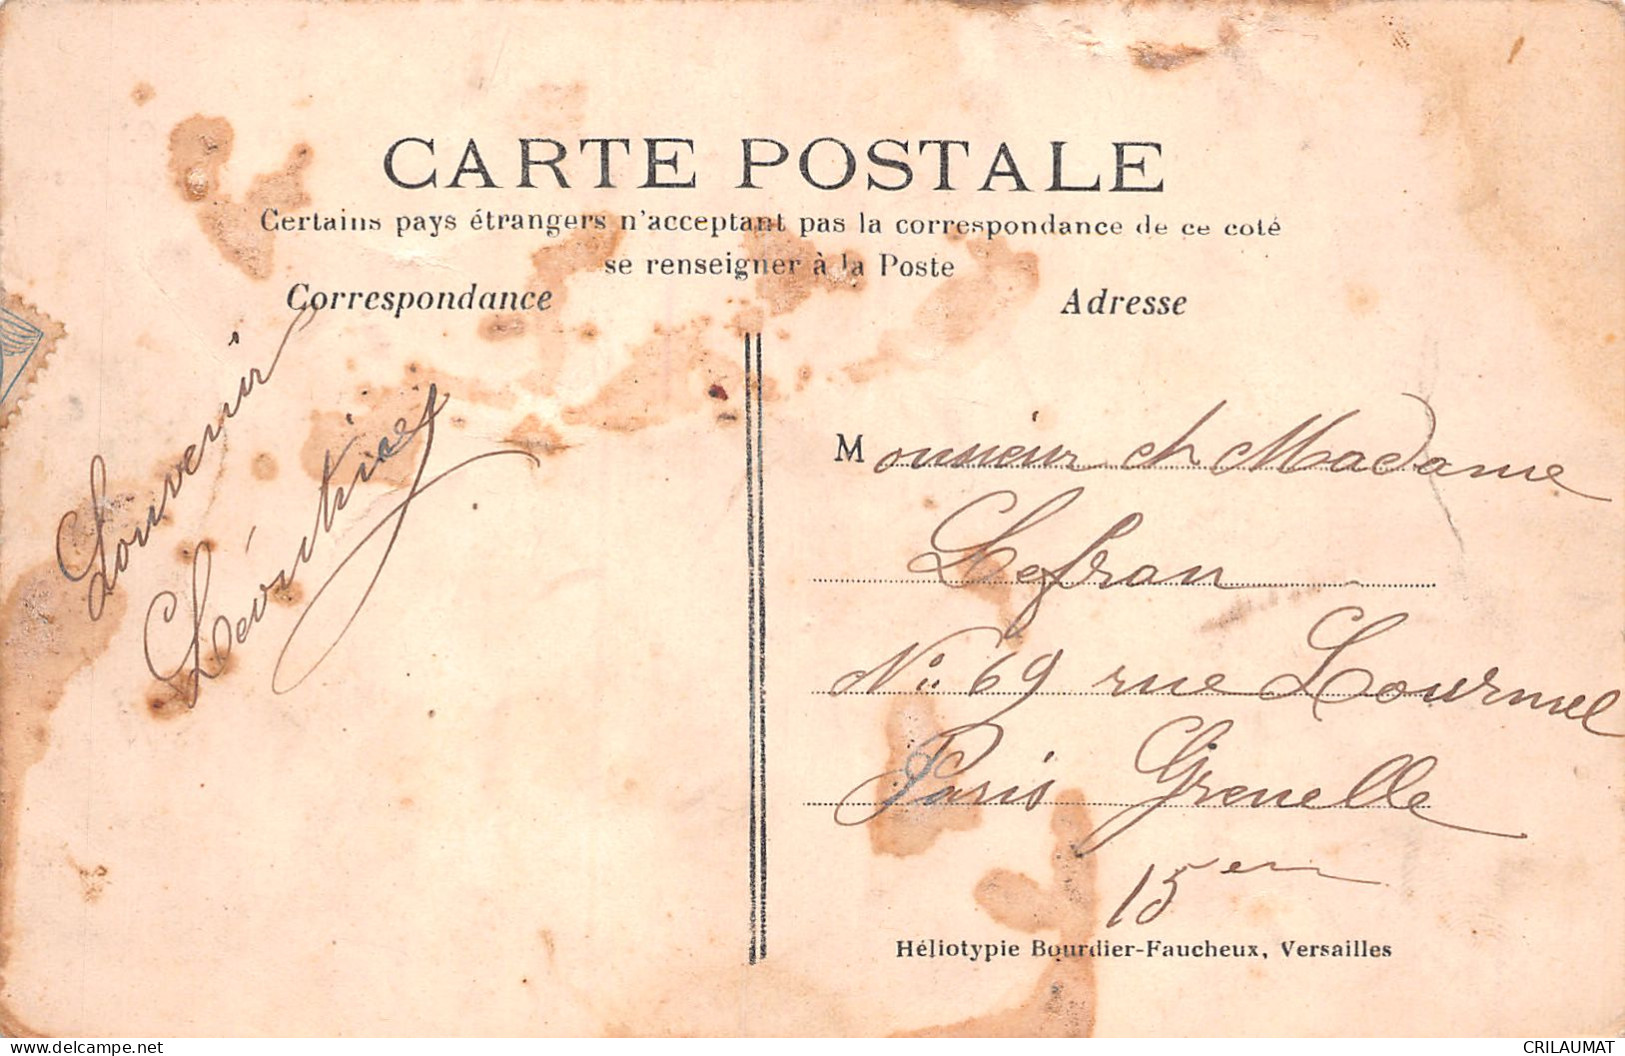 CARTE POSTALE
Certains pays étrangers n'acceptant pas la correspondance de ce coté
se renseigner à la Poste
Correspondance
Adresse
Souvenir
Monsieur et Madame
Lefran
No: 69 rue Lourmel
Paris Grenelle
15em
Héliotypie Bourdier-Faucheux, Versailles
www.delcampe.net
CRILAUMAT